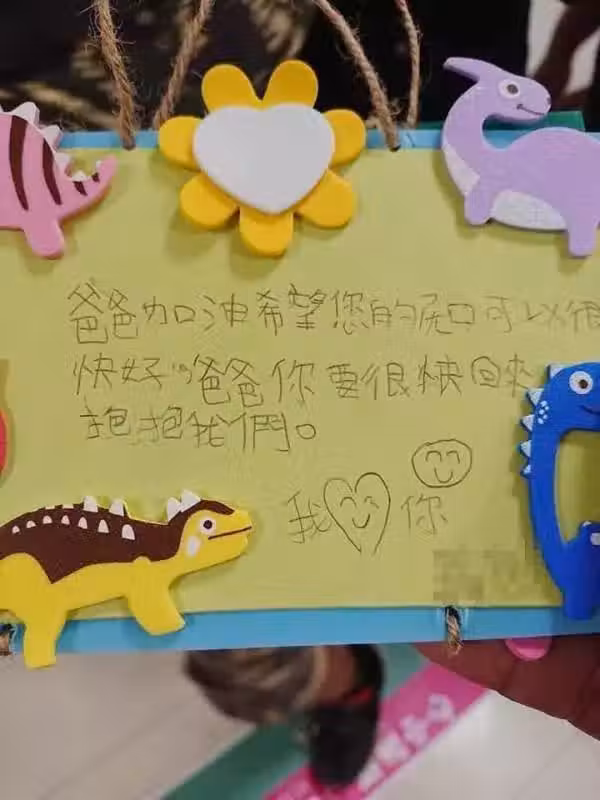 爸爸加油希望您的口可以很
快好，爸爸你要很快回來
抱抱我們。
我♡你